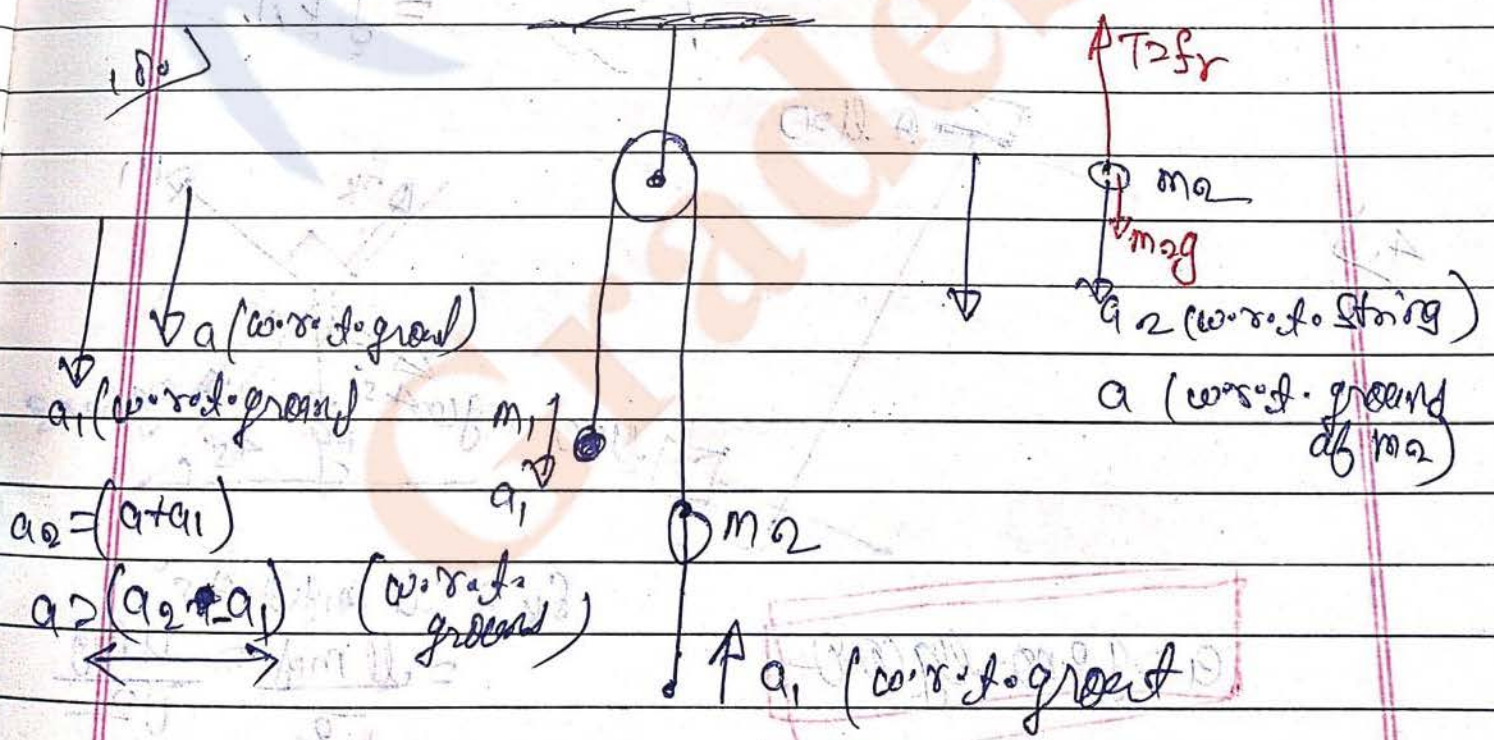 180)
T=fr
m2
m2g
a2 (w.r.t. string)
a (w.r.t. ground of m2)
a (w.r.t. ground)
a1 (w.r.t. ground)
m1
a1
m2
a2 = (a+a1)
a = (a2 - a1) (w.r.t. ground)
a1 (w.r.t. ground
Grade